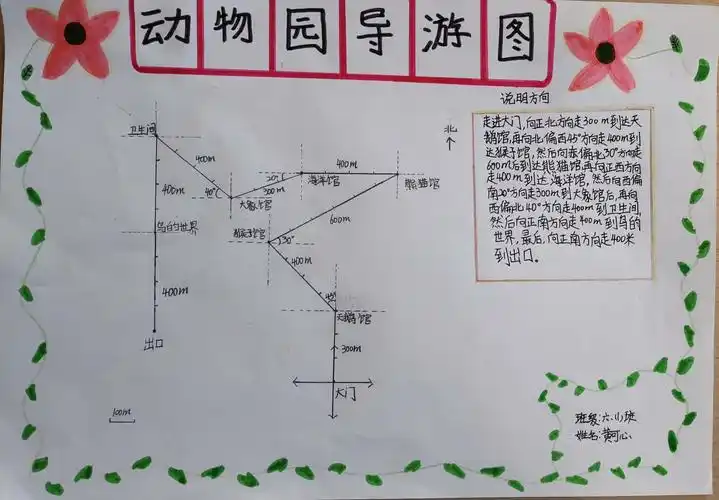 动物园导游图
说明方向
走进大门,向正北方向走300m到达天
鹅馆,再向北偏西45°方向走400m到
达猴子馆,然后向东偏北30°方向走
600m后到达熊猫馆,再向正西方向
走400m到达海洋馆,然后向西偏
南20°方向走300m到大象馆后,再向
西偏北40°方向走400m到卫生间,
然后向正南方向走400m到鸟的
世界,最后,向正南方向走400米
到出口。
北
卫生间
400m
40°
400m
20°
300m
大象馆
海洋馆
400m
熊猫馆
600m
鸟的世界
猴子馆
30°
400m
45°
天鹅馆
400m
300m
出口
大门
100m
班级:六.(1)班
姓名:黄可心